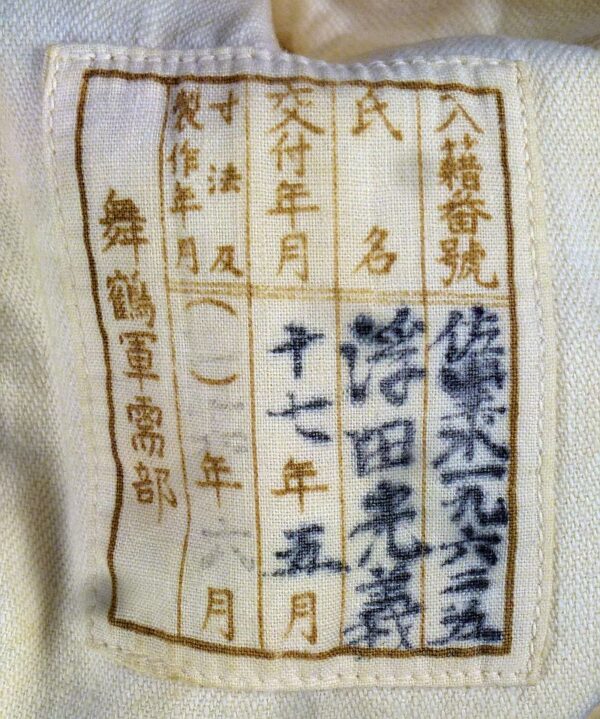 入籍番號 佐水一九六二五
氏名 浮田光義
交付年月 十七年五月
寸法及
製作年月 ( ) 年六月
舞鶴軍需部